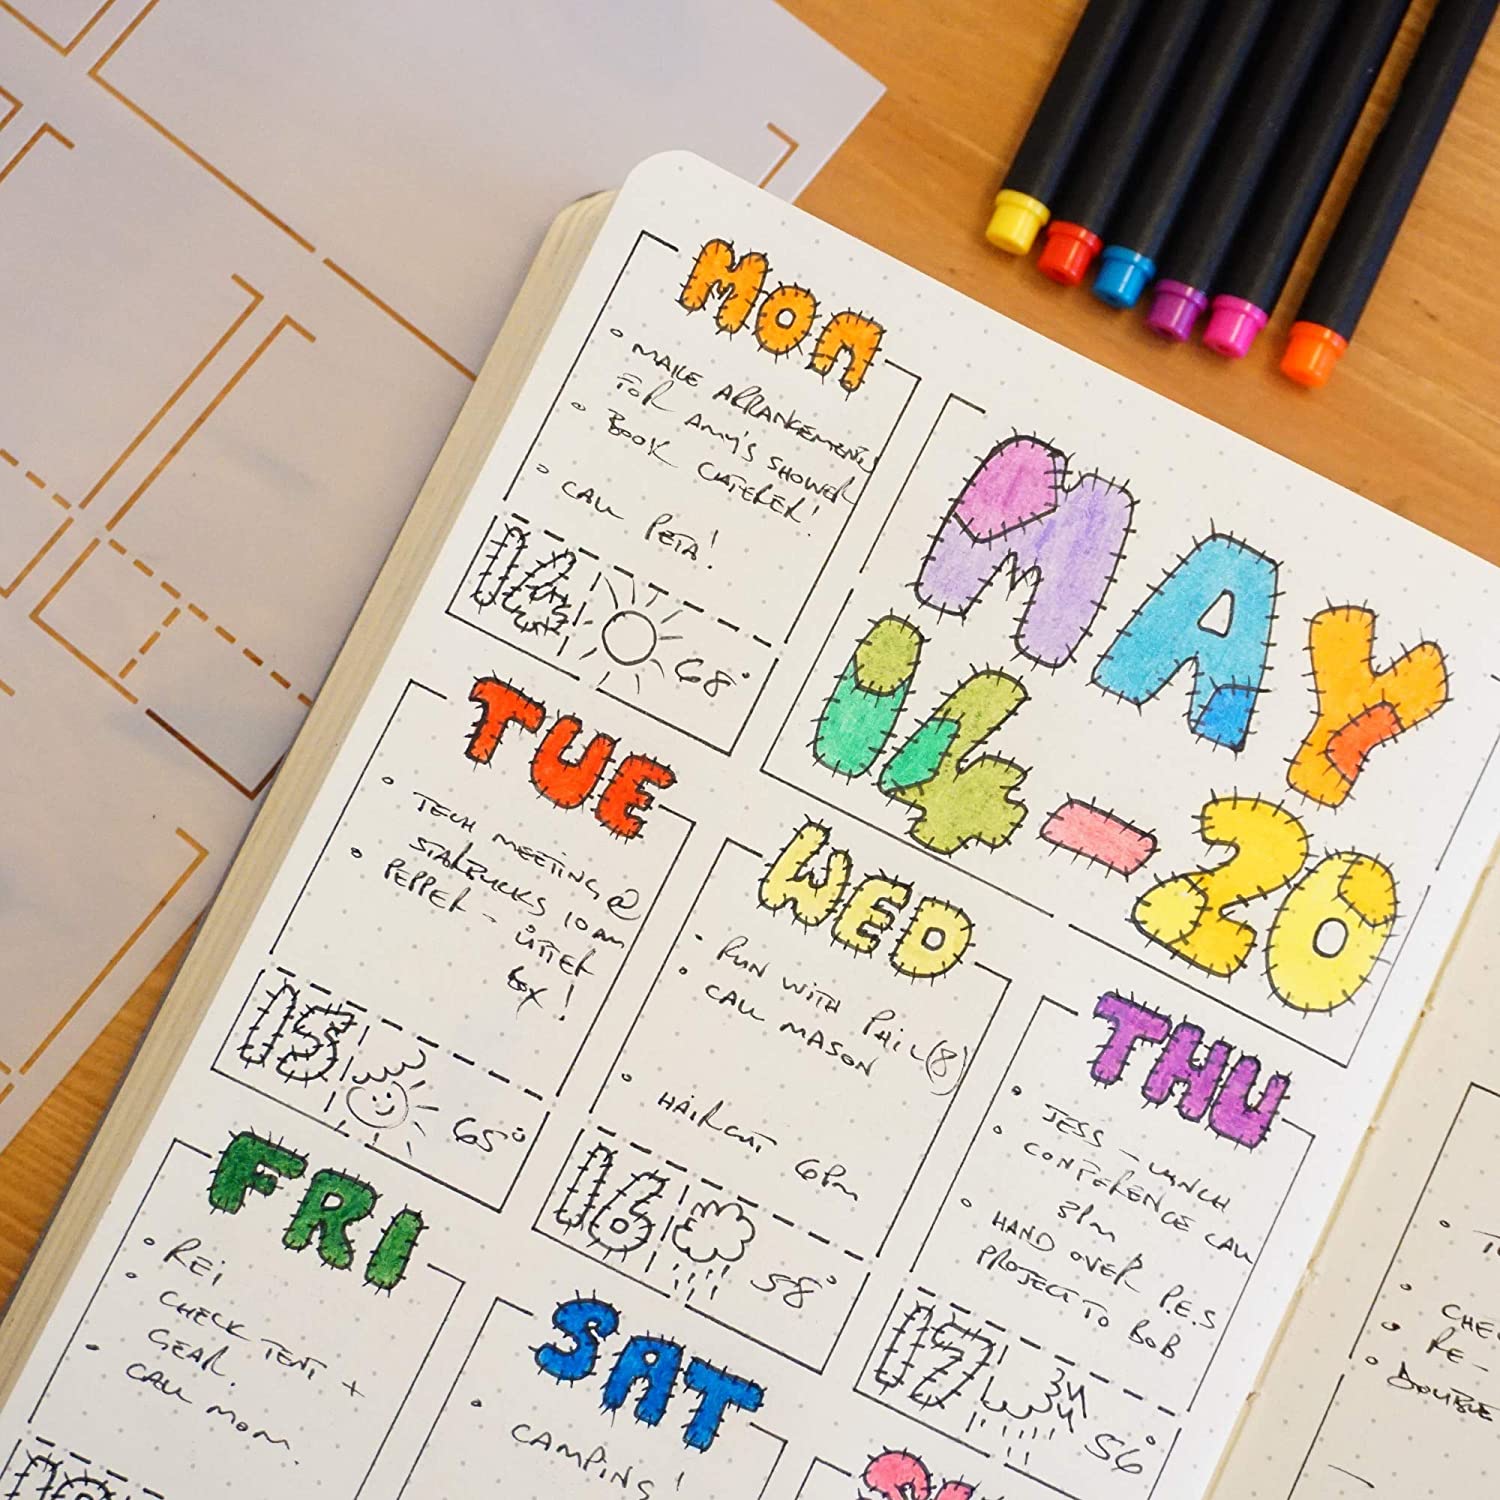 MON
MAKE ARRANGEMENTS
FOR AMY'S SHOWER
BOOK CATERER!
CALL PETA!
14
68°
MAY
14-20
TUE
TECH MEETING @
STARBUCKS 10am
PEPPER - LITTER
BOX!
15
65°
WED
RUN WITH PHIL (8)
CALL MASON
HAIRCUT 6PM
16
58°
THU
JESS - LUNCH
CONFERENCE CALL
3PM
HAND OVER P.E.S
PROJECT TO BOB
17
56°
FRI
REI
CHECK TENT +
GEAR.
CALL MOM
SAT
CAMPING!
CHE
RE-
DOUBLE